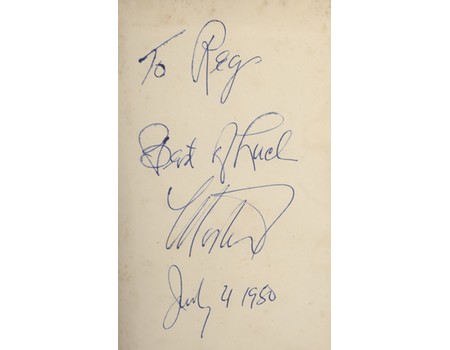 To Reg
Best of Luck
July 4 1980